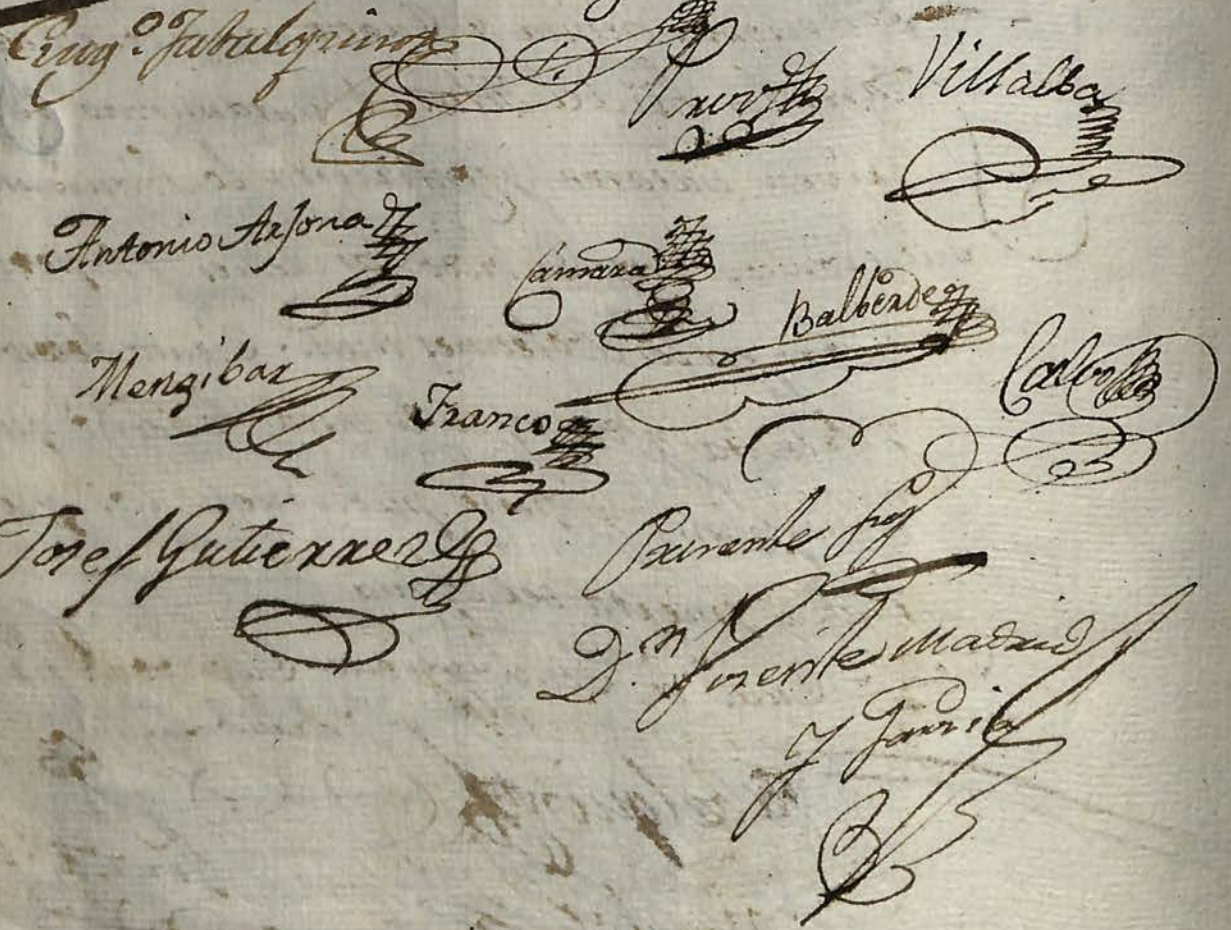 Eug.º Jabalquinto
Villalba
Antonio Arjona
Camara
Balberde
Mengibar
Franco
Calbo
Josef Gutierrez
Presente fuy
D.n Vicente Madrid
y Garcia